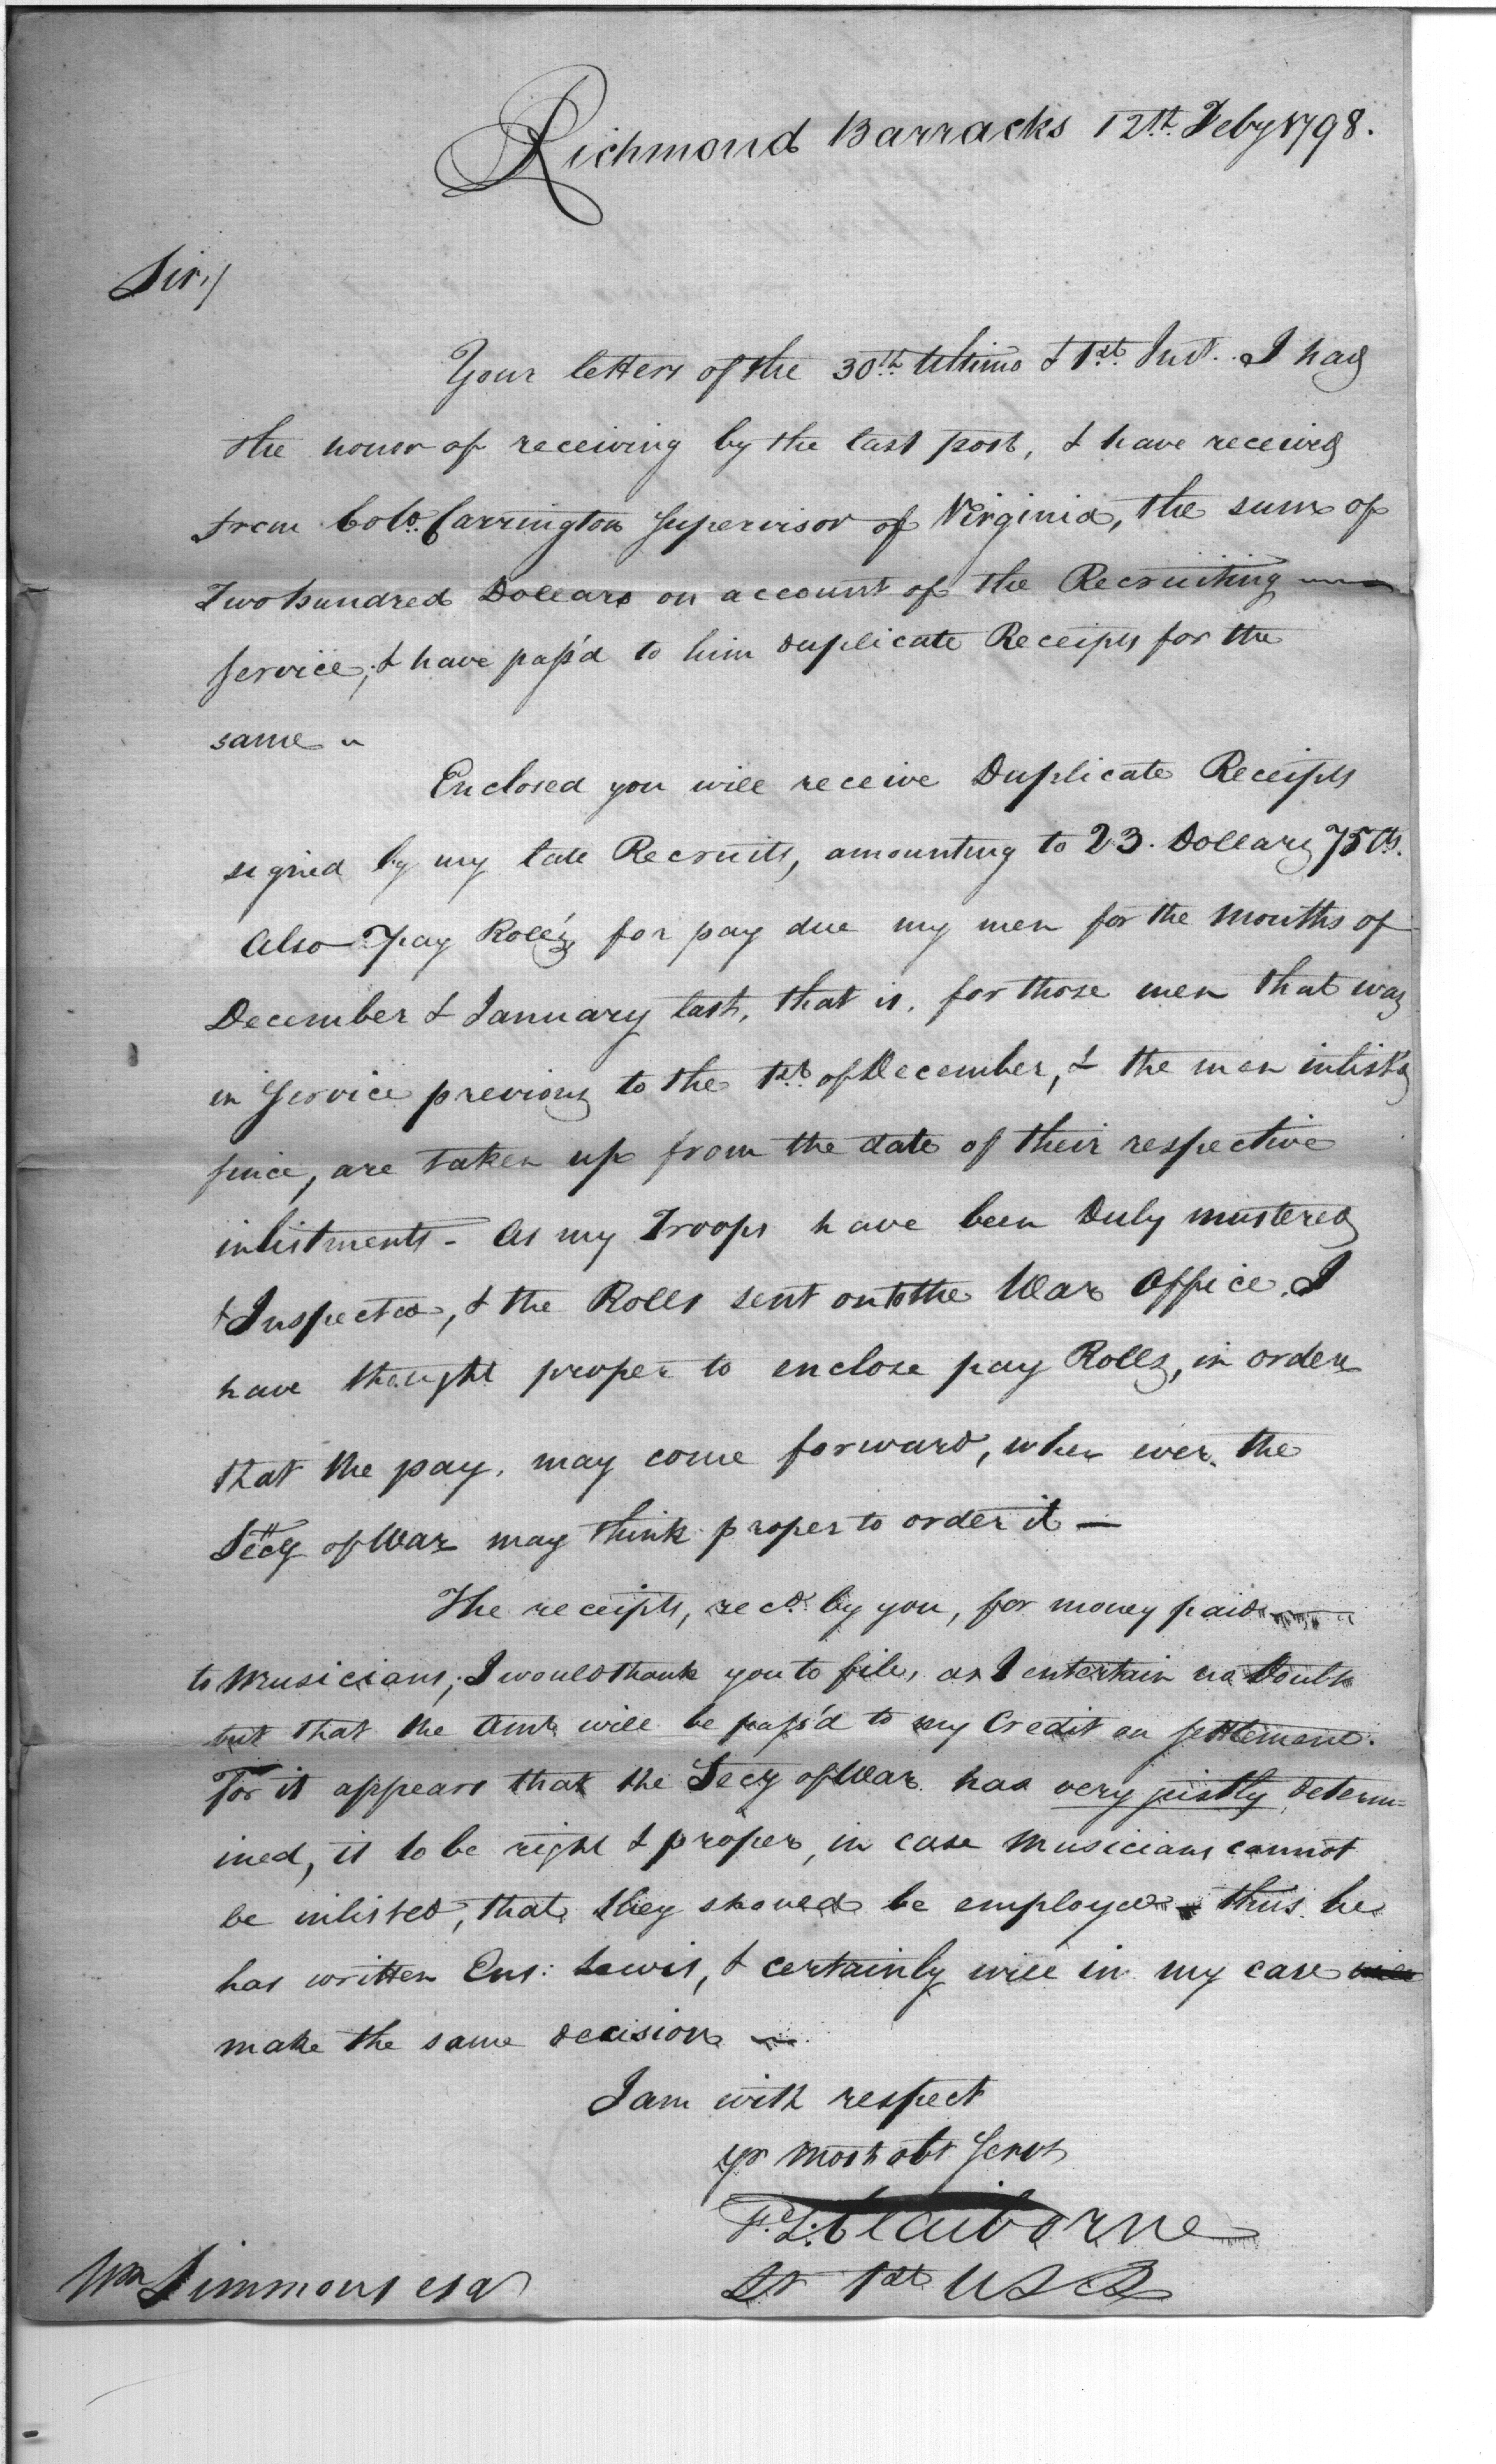 Richmond Barracks 12th. Feby 1798.
Sir,/
Your letters of the 30th. Ultimo & 1st. Inst. I had
the honor of receiving by the last post, & have received
from Colo. Carrington Supervisor of Virginia, the sum of
Two hundred Dollars on account of the Recruiting
Service; & have pass'd to him duplicate Receipts for the
same
Enclosed you will receive Duplicate Receipts
signed by my late Recruits, amounting to 23. Dollars 75 Cts.
Also Pay Roll's for pay due my men for the Months of
December & January last, that is, for those men that was
in Service previous to the 1st. of December, & the men inlist'd
since, are taken up from the date of their respective
inlistments - As my Troops have been Duly mustered
& Inspected, & the Rolls sent on to the War Office, I
have thought proper to enclose pay Rolls, in order
that the pay, may come forward, when ever the
Secy of War may think proper to order it —
The receipts, recd. by you, for money paid
to Musicians; I would thank you to file, as I entertain no Doubt
but that the Amt. will be pass'd to my Credit on settlement.
For it appears that the Secy of War has very justly determ=
ined, it to be right & proper, in case Musicians cannot
be inlisted, that they should be employed - thus he
has written Ens: Lewis, & certainly will in my case
make the same decision —
I am with respect
yr most obt Servt
F. L. Claiborne
Lt 1st U S R
Wm Simmons esqr